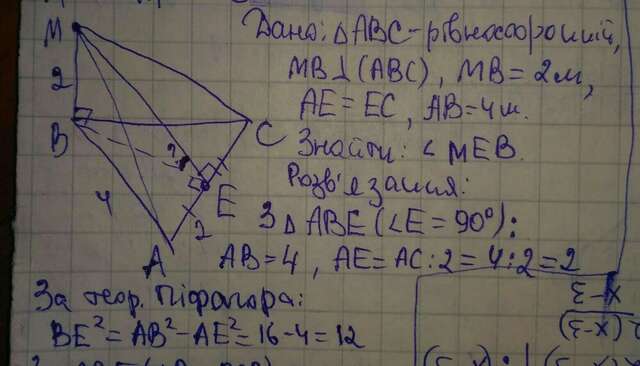 M
2
B
C
?
E
4
2
A
Дано: △ABC - рівносторонній,
MB⊥(ABC), MB = 2м,
AE = EC, AB = 4м.
Знайти: ∠MEB.
Розв'язання:
З △ABE (∠E = 90°):
AB = 4, AE = AC:2 = 4:2 = 2
За теор. Піфагора:
BE² = AB² - AE² = 16 - 4 = 12